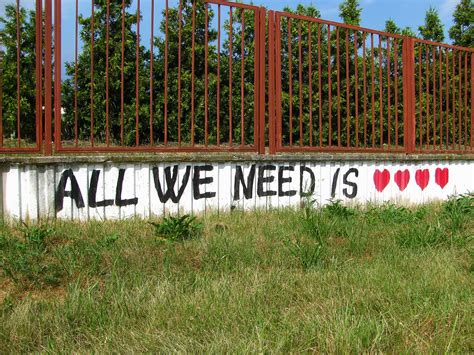 ALL WE NEED IS ♥♥♥♥